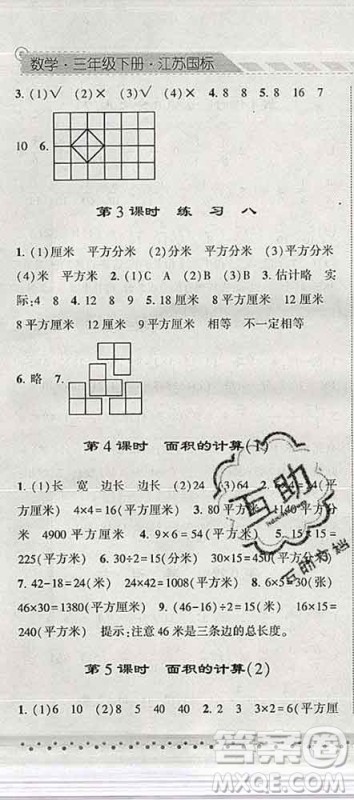 数学·三年级下册·江苏国标
3. (1)√ (2)× (3)√ (4)× 4. 8 8 5. 8 16 7
10 6.
第3课时 练 习 八
1. (1)厘米 平方分米 (2)分米 平方分米 (3)平方厘米
(4)米 平方米 2. (1)C (2)A (2)B (3)B 3. 估计略 实
际:4 8 8 4. 12 12 15 5. 平方厘米 18平方厘米
8平方厘米 12平方厘米 9平方厘米 相等 不一定相等
6. 略 7.
第4课时 面积的计算(1)
1. (1)长 宽 边长 边长 (2)24 (3)64
54平方米 4=16(平方米) 3. 80平方厘米 140平方分
米 4900平方米 4. 9×6=54(平方分米) 5. 15×15=
225(平方分米) 6. 30÷2=15(分米) 30×15=450(平方分米)
7. 42-18=24(米) 24×42= 8. 6×5=30(张)
46×30=1380(平方厘米) 9. 46-15×2=16(米) 16×15=
240(平方米) 提示:注意46米是三条边的总长度。
第5课时 面积的计算(2)
1. (1)6 10 (2)8 40 2. 3×2=6(平方厘
互助
答案
MHDAAN.COM